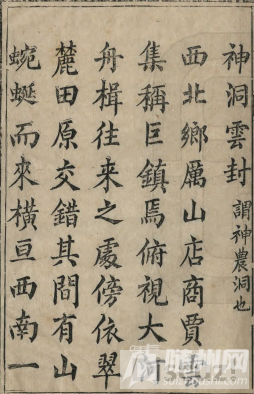 神洞雲封謂神農洞也
西北鄉厲山店商賈雲
集稱巨鎮焉俯視大河
舟楫往來之處傍依翠
麓田原交錯其間有山
蜿蜒而來橫亘西南一